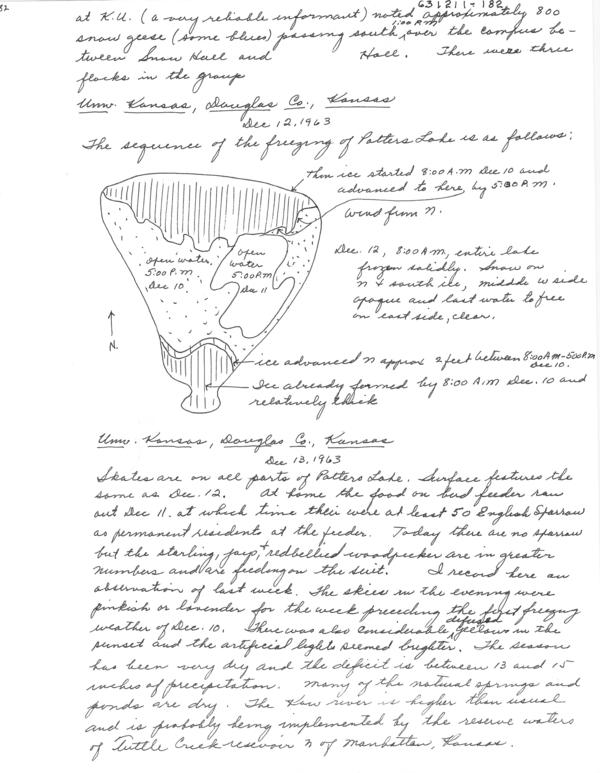 82
631211-182
at K.U. (a very reliable informant) noted approximately 800
1:00 P.M
snow geese (some blues) passing south, over the campus be-
tween Snow Hall and Hall. There were three
flocks in the group
Univ. Kansas, Douglas Co., Kansas
Dec 12, 1963
The sequence of the freezing of Potters Lake is as follows:
Thin ice started 8:00 A.M Dec 10 and
advanced to here, by 5:30 P.M.
Wind from N.
open water,
5:00 P.M.
Dec 10
open
water
5:00 P.M
Dec 11
Dec. 12, 8:00 A.M, entire lake
frozen solidly. Snow on
N + south ice, middle w side
opaque and last water to free
on east side, clear.
N.
ice advanced N approx 2 feet between 8:00 A.M-5:00 P.M
Dec 10.
Ice already formed by 8:00 A.M Dec. 10 and
relatively thick
Univ. Kansas, Douglas Co., Kansas
Dec 13, 1963
Skates are on all parts of Potters Lake. Surface features the
same as Dec. 12. At home the food on bird feeder ran
out Dec 11. at which time their were at least 50 English Sparrow
as permanent residents at the feeder. Today there are no sparrow
but the starling, jays, + redbellied woodpecker are in greater
numbers and are feeding on the suit. I record here an
observation of last week. The skies in the evening were
pinkish or lavender for the week preceding the first freezing
weather of Dec. 10. There was also considerable defused yellows in the
sunset and the artificial lights seemed brighter. The season
has been very dry and the deficit is between 13 and 15
inches of precipitation. Many of the natural springs and
ponds are dry. The Kaw river is higher than usual
and is probably being implemented by the reserve waters
of Tuttle Creek resevoir N of Manhattan, Kansas.